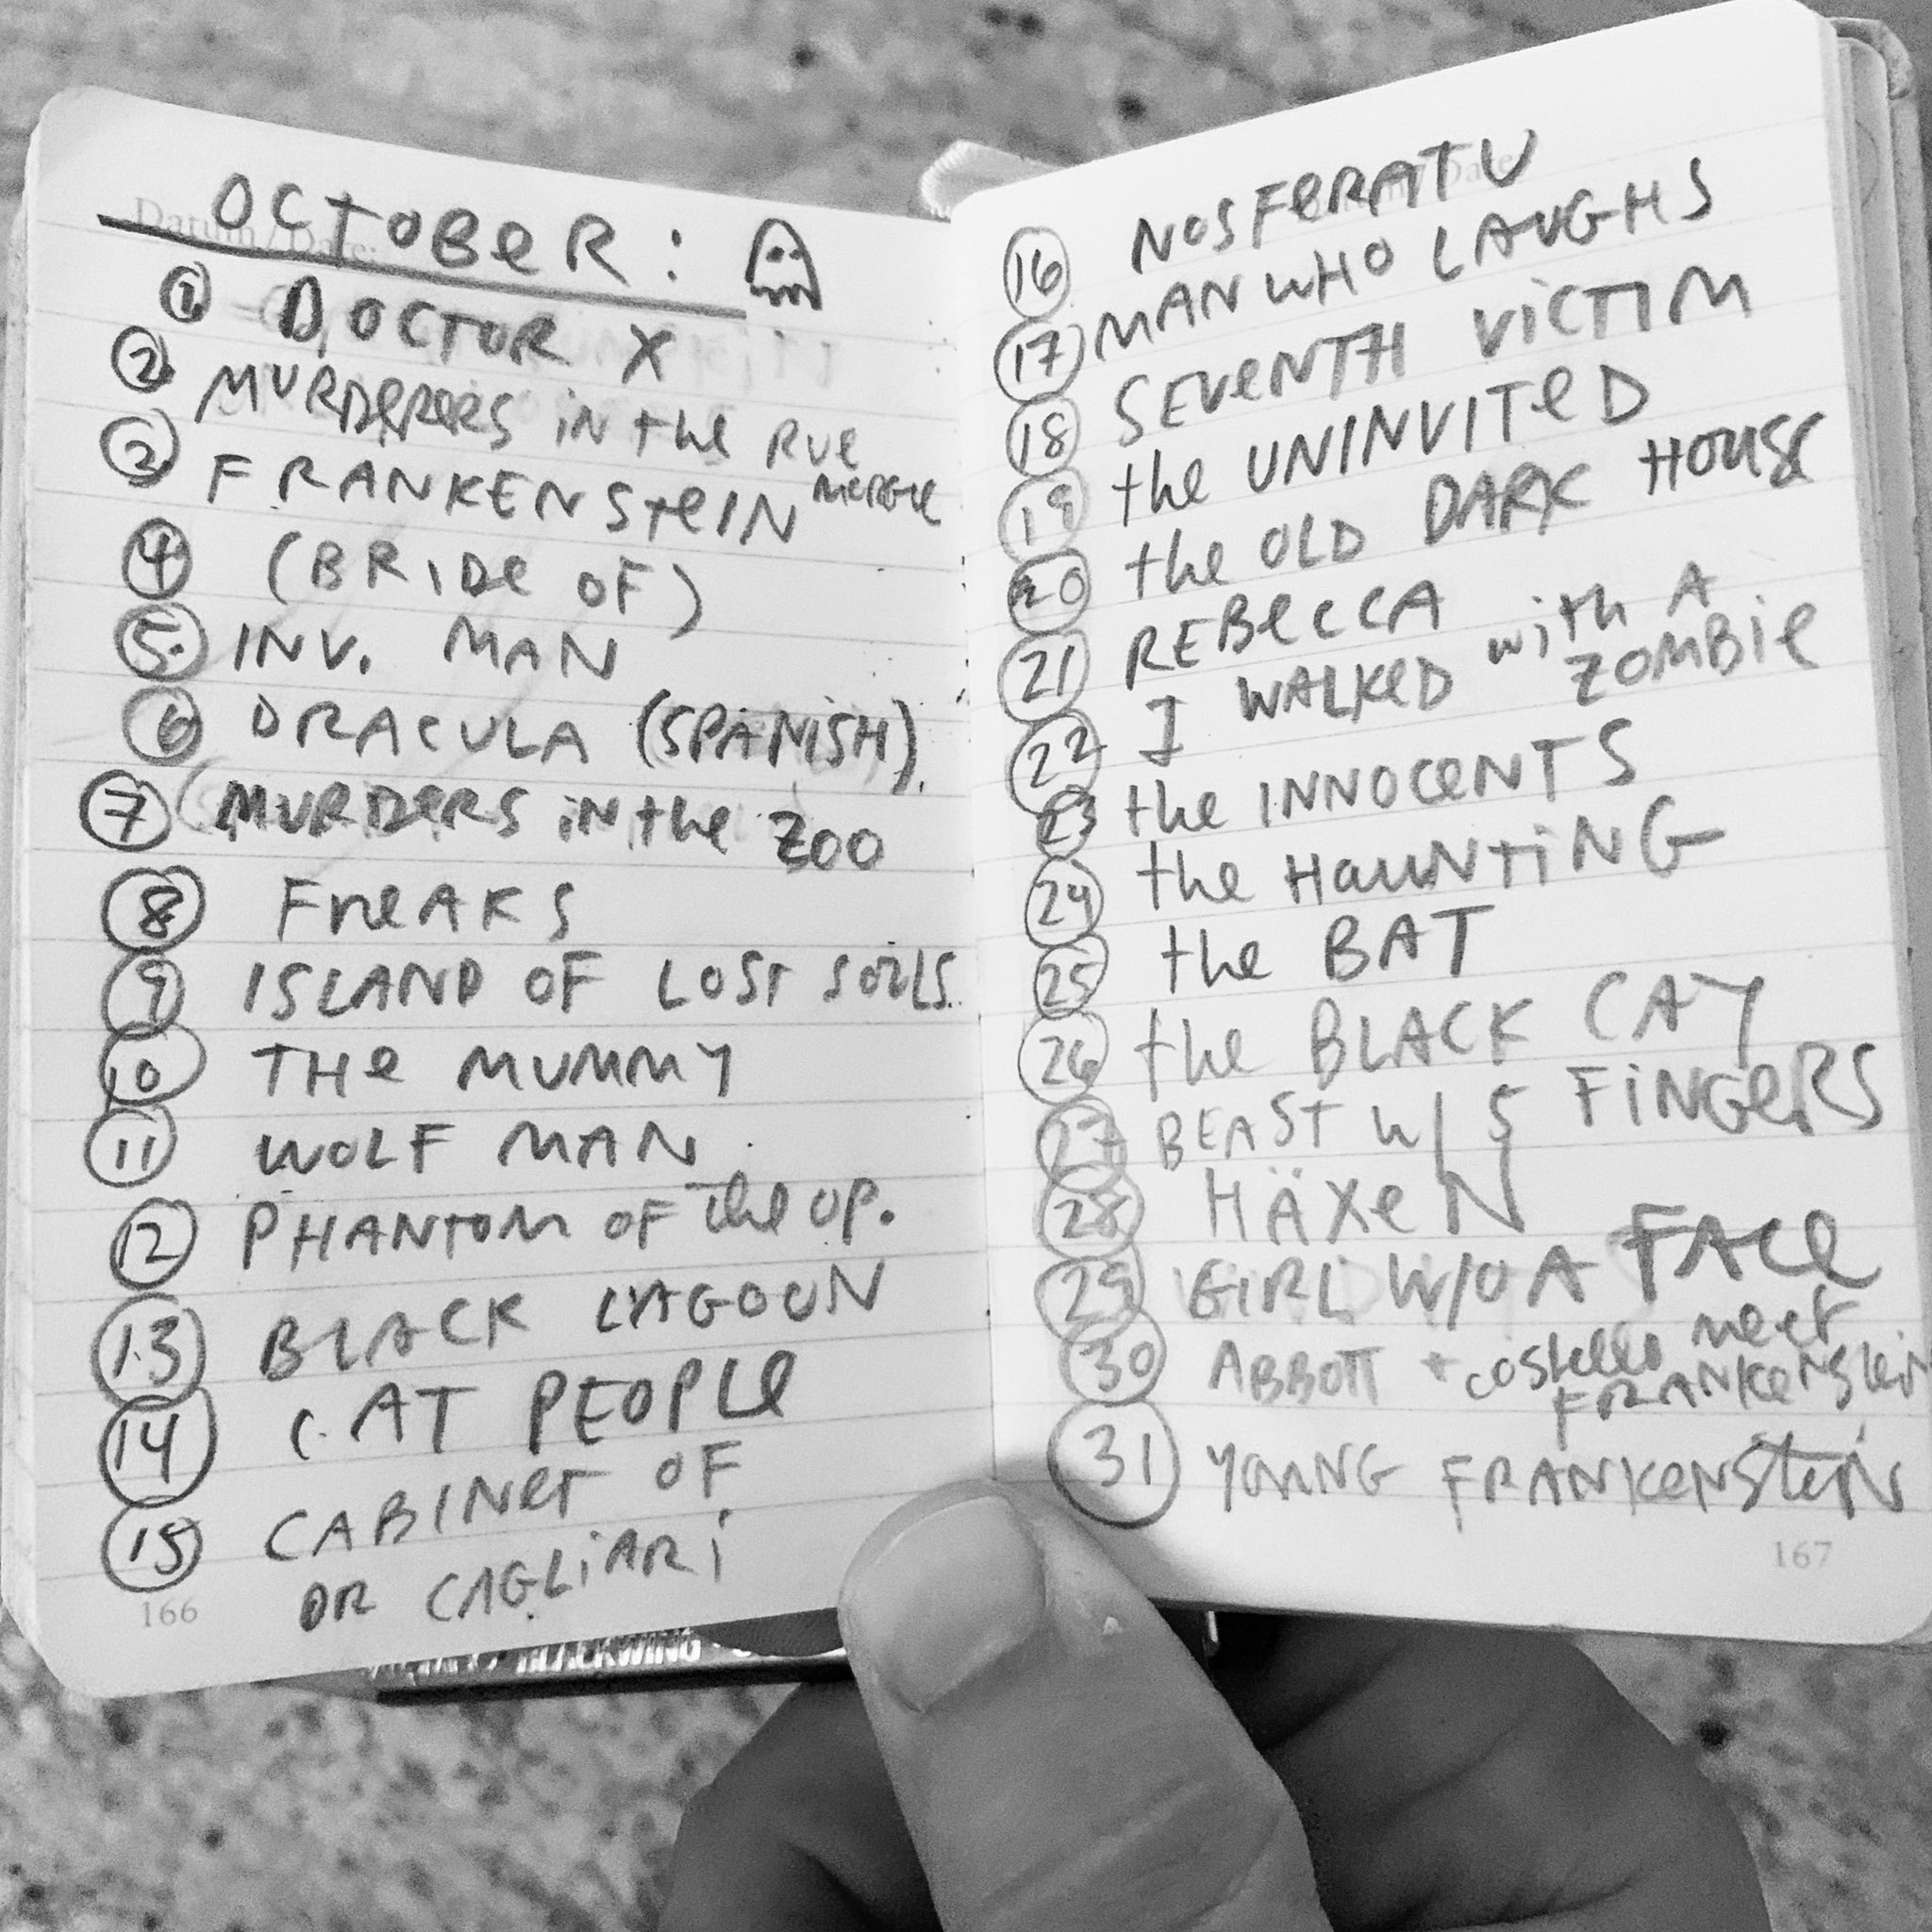 OCTOBER:
1. DOCTOR X
2. MURDERERS in the RUE
MORGUE
3 FRANKENSTEIN
4 (BRIDE OF)
5. INV. MAN
6 DRACULA (SPANISH).
7 MURDERS in the ZOO
8 FREAKS
9 ISLAND OF LOST SOULS.
10 THE MUMMY
11 WOLF MAN
12 PHANTOM OF the OP.
13 BLACK LAGOON
14 CAT PEOPLE
15 CABINET OF
DR CAGLIARI
166
16 NOSFERATU
17 MAN WHO LAUGHS
18 SEVENTH VICTIM
19 the UNINVITED
20 the OLD DARK HOUSE
21 REBECCA
22 I WALKED with A
ZOMBIE
23 the INNOCENTS
24 the HAUNTING
25 the BAT
26 the BLACK CAT
27 BEAST W/ 5 FINGERS
28 HÄXEN
29 GIRL W/O A FACE
30 ABBOTT + COSTELLO meet
FRANKENSTEIN
31 YOUNG FRANKENSTEIN
167
BLACKWING